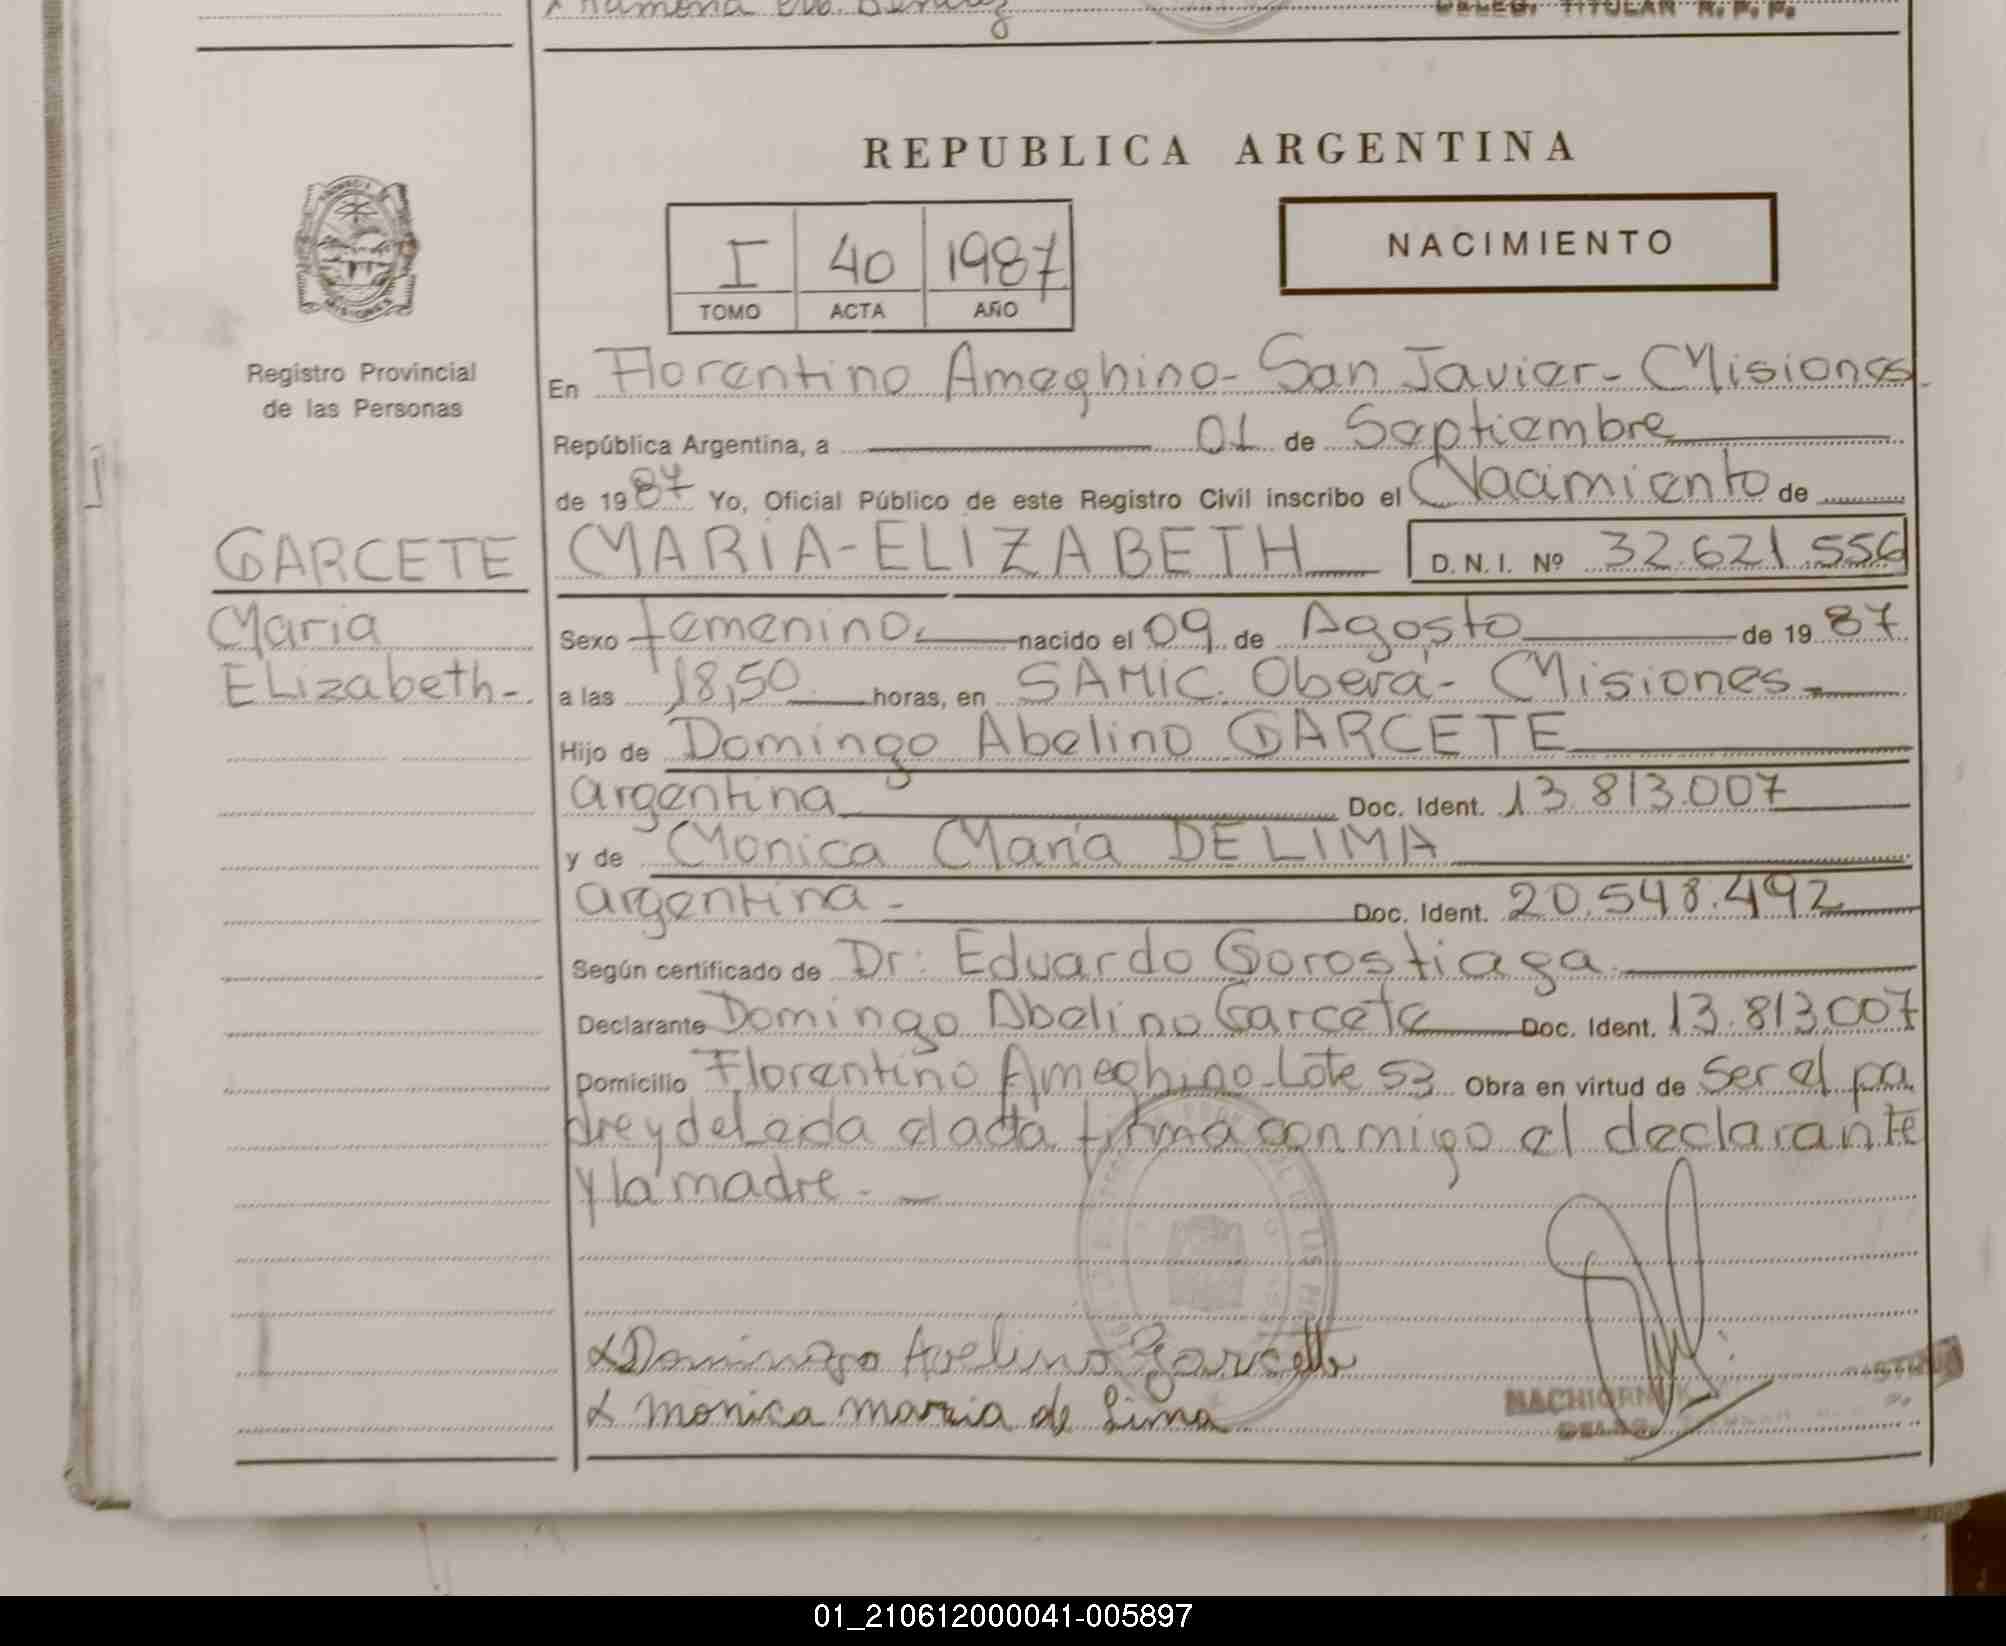 Ramona
DELEG. TITULAR R. P. P.
REPUBLICA ARGENTINA
I 40 1987
TOMO ACTA AÑO
NACIMIENTO
Registro Provincial
de las Personas
En Florentino Ameghino - San Javier - Misiones
República Argentina, a 01 de Septiembre
de 1987 Yo, Oficial Público de este Registro Civil inscribo el Nacimiento de
GARCETE MARIA-ELIZABETH D. N. I. Nº 32.621.556
Maria
Elizabeth-
Sexo femenino. nacido el 09 de Agosto de 1987
a las 18,50 horas, en SAMIC. Oberá - Misiones-
Hijo de Domingo Abelino GARCETE
argentina Doc. Ident. 13.813.007
y de Monica María DE LIMA
argentina - Doc. Ident. 20.548.492
Según certificado de Dr: Eduardo Gorostiaga.
Declarante Domingo Abelino Garcete Doc. Ident. 13.813.007
Domicilio Florentino Ameghino-Lote 53 Obra en virtud de ser el pa
dre y deLeida el acta firma conmigo el declarante
y la madre. -
x Domingo Avelino Garcette
x monica maria de Lima
DELEG.
01_210612000041-005897